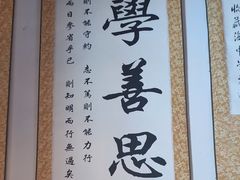 學善思
則不能守約 志不篤則不能力行
而日參省乎己 則知明而行無過矣